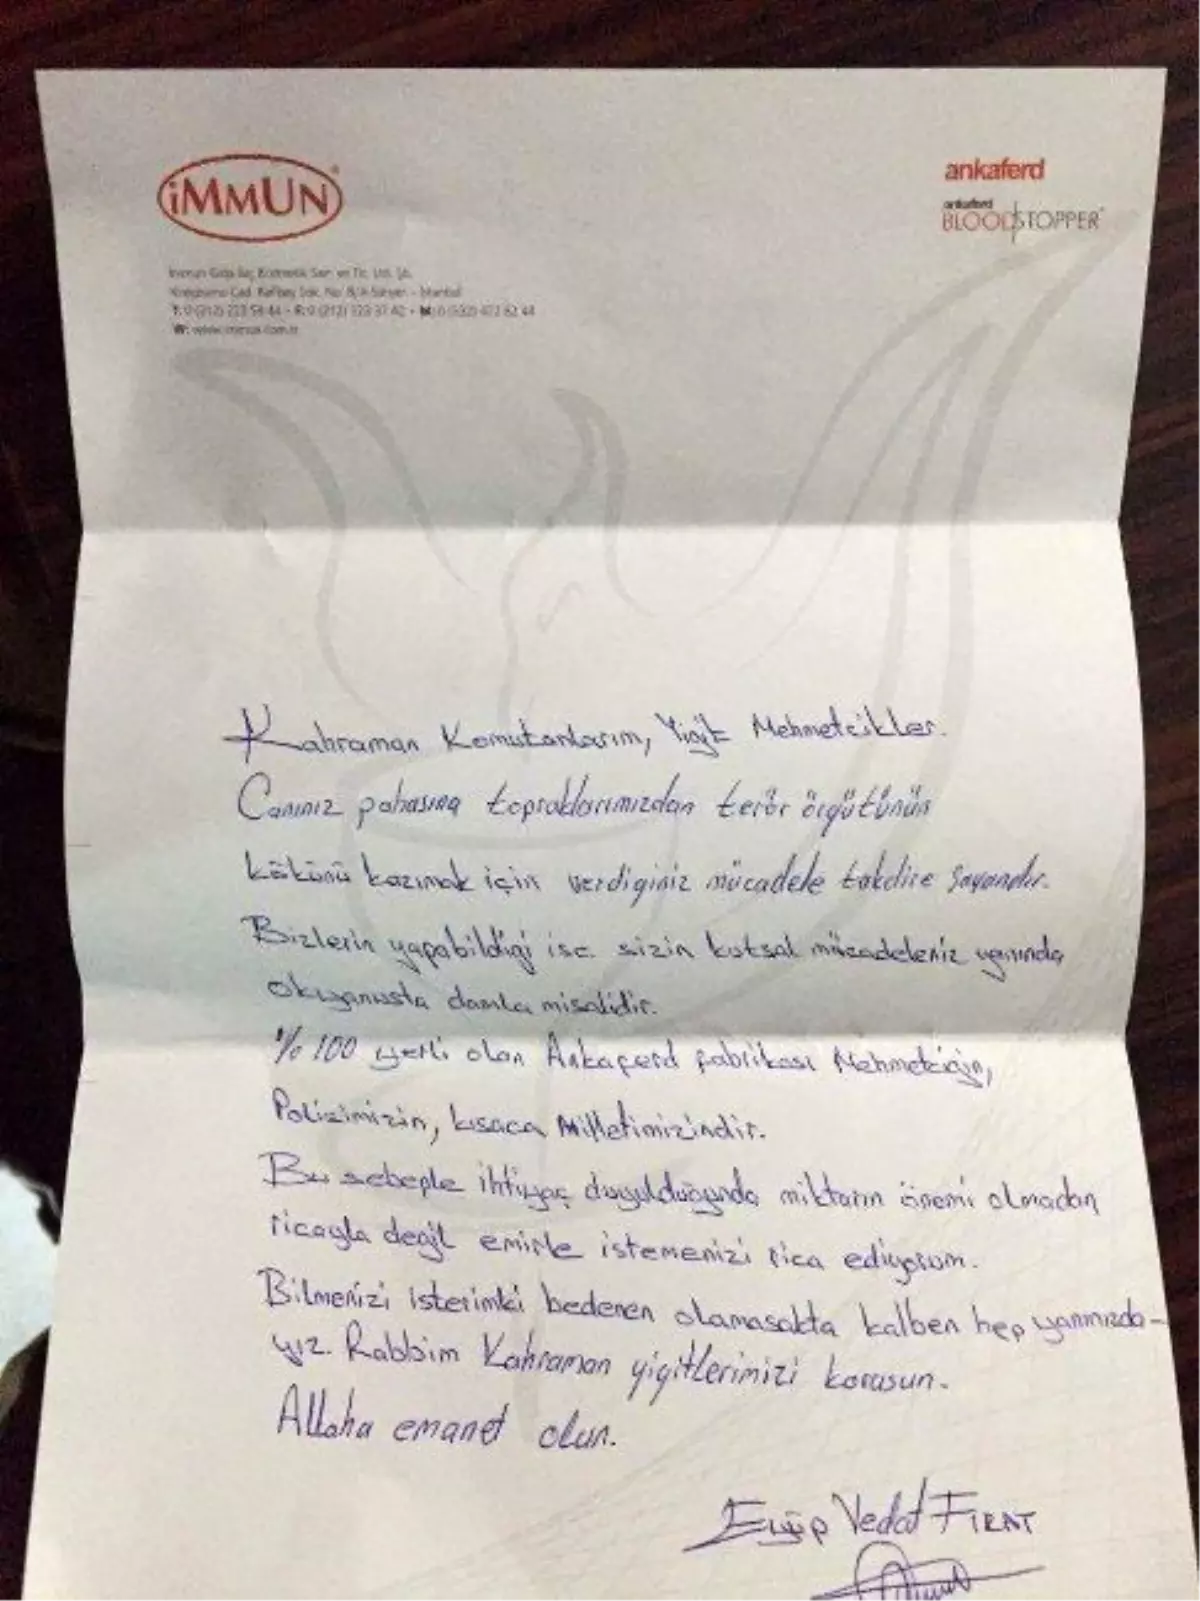 iMMUN
ankaferd
ankaferd
BLOODSTOPPER
Kahraman Komutanlarım, Yiğit Mehmetcikler.
Canınız pahasına topraklarımızdan terör örgütünün
kökünü kazımak için verdiginiz mücadele takdire şayandır.
Bizlerin yapabildiği ise sizin kutsal mücadeleniz yanında
okyanusta damla misalidir.
% 100 yerli olan Ankaferd fabrikası Mehmetciğin,
Polisimizin, kısaca Milletimizindir.
Bu sebeple ihtiyaç duyulduğunda miktarın önemi olmadan
ricayla değil emirle istemenizi rica ediyorum.
Bilmenizi isterimki bedenen olamasakta kalben hep yanınızda-
yız. Rabbim Kahraman yigitlerimizi korusun.
Allaha emanet olun.
Eyüp Vedat FIRAT